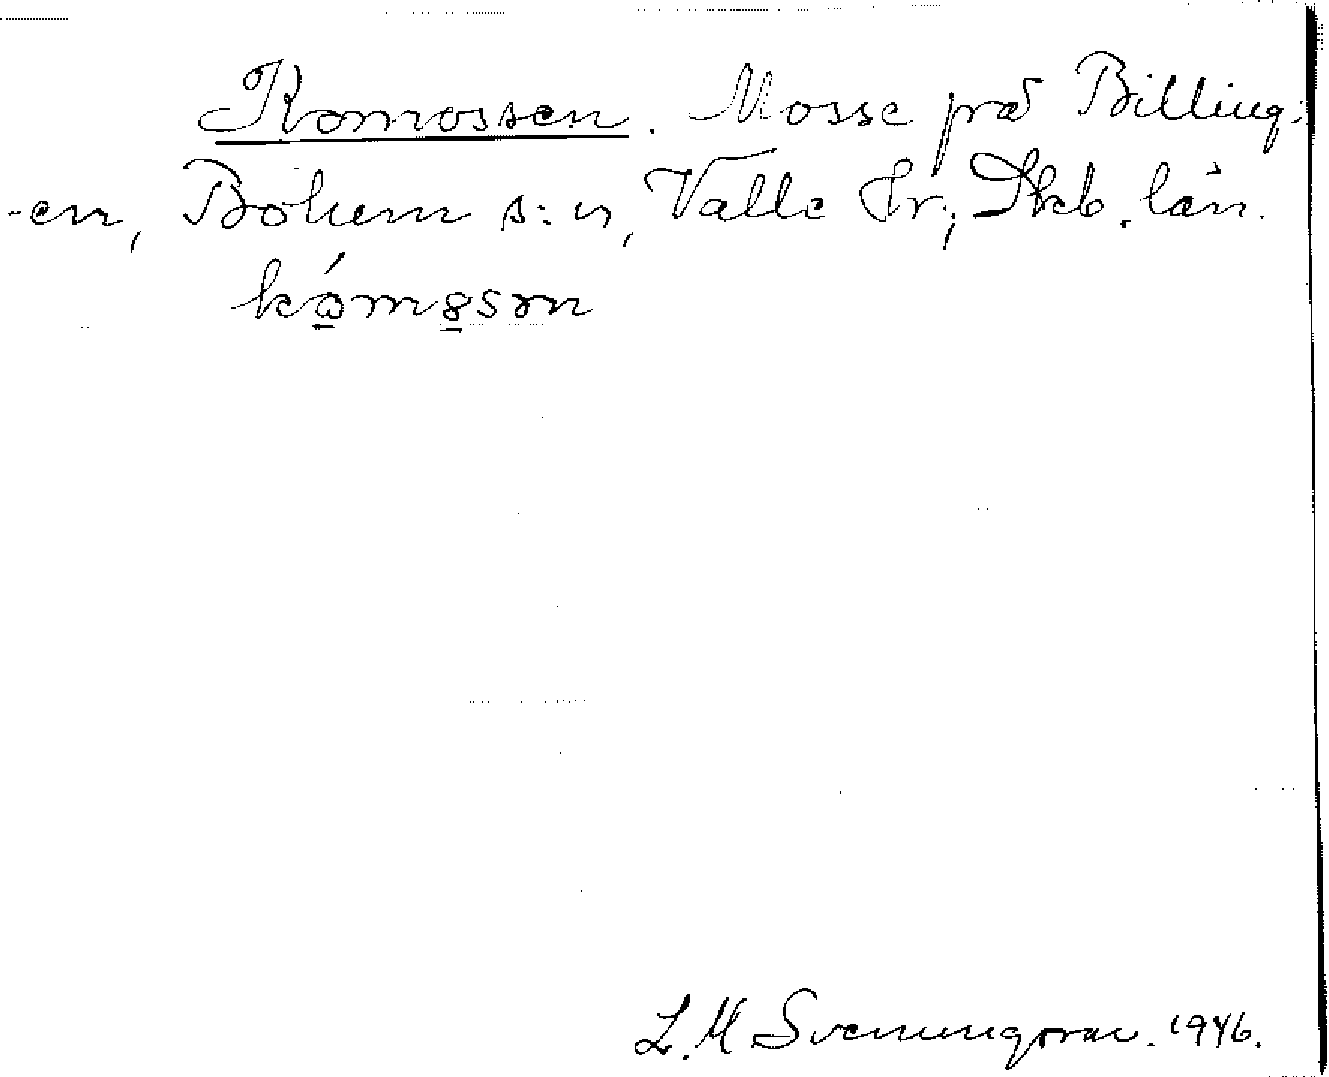 Komossen. Mosse på Billing-
-en, Bolum s:n, Valle hr; Skb. län.
L. M Svenungsson. 1946.